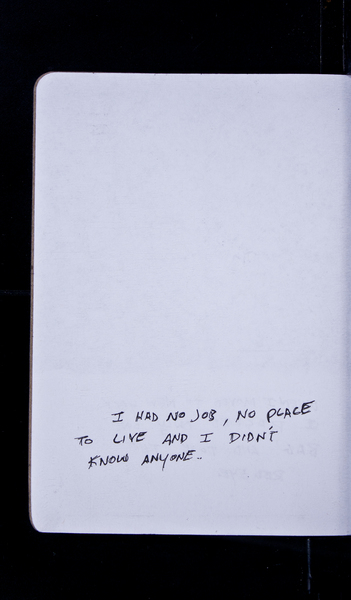 I HAD NO JOB, NO PLACE
TO LIVE AND I DIDN'T
KNOW ANYONE..